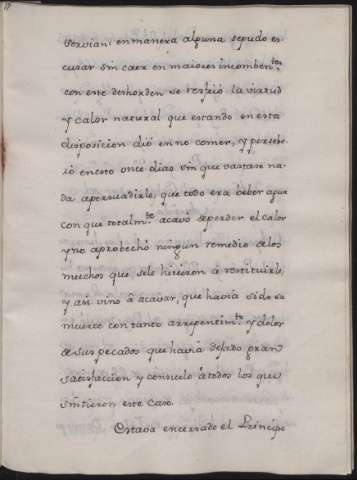 servian: en manera alguna se pudo es=
cusar sin caer en maiores incombentes.
con este deshorden se resfrió la virtud
y calor natural que estando en esta
disposicion dió en no comer, y perseve=
ró en esto once dias sin que vastase na=
da a persuadirle, que todo era beber agua
con que totalmte. acavó a perder el calor
y no aprobechó ningun remedio de los
muchos que se le hicieron á restituirle,
y asi vino á acavar, que havia sido su
muerte con tanto arrepentimto. y dolor
de sus pecados que havia dejado gran
satisfaccion y consuelo á todos los que
sintieron este caso.
Estava encerrado el Principe